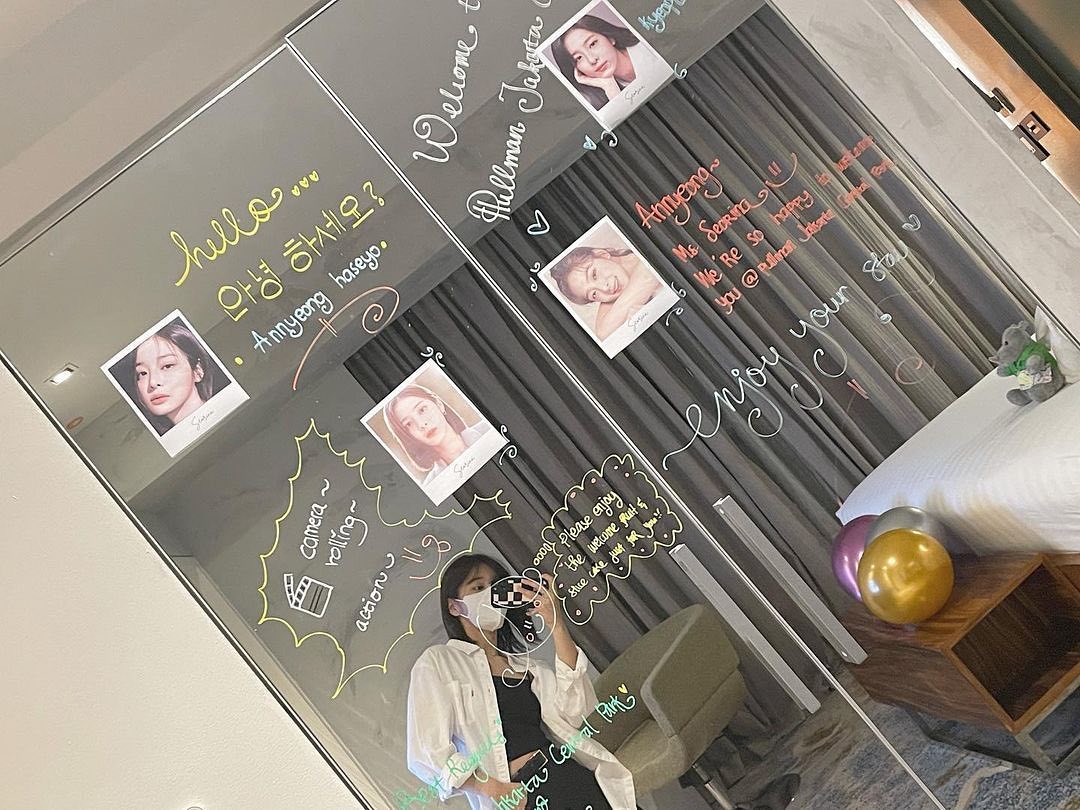 hello...
안녕 하세요?
• Annyeong haseyo •
Welcome t
Pullman Jakarta C
Kyeop
Annyeong~
Ms Seorina
We're so happy to welcome
you @ Pullman Jakarta Central Park
enjoy your stay
camera ~
rolling ~
action ~
please enjoy
the welcome fruit &
slice cake just for you!!
Best Regards
Jakarta Central Park